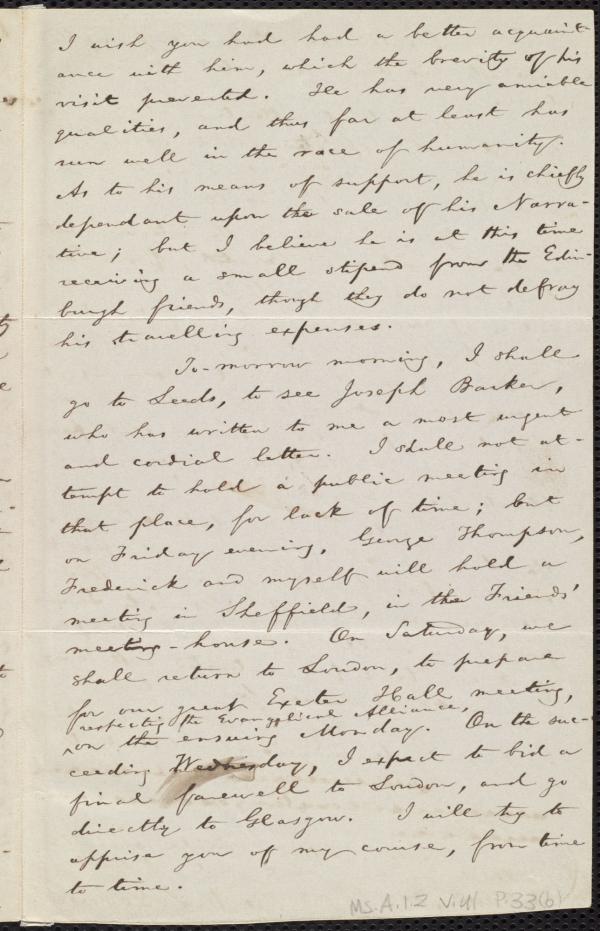 I wish you had had a better acquaint-
ance with him, which the brevity of his
visit prevented. He has very amiable
qualities, and thus far at least has
run well in the race of humanity.
As to his means of support, he is chiefly
dependant upon the sale of his Narra-
tive; but I believe he is at this time
receiving a small stipend from the Edin-
burgh friends, though they do not defray
his travelling expenses.
To-morrow morning, I shall
go to Leeds, to see Joseph Barker,
who has written to me a most urgent
and cordial letter. I shall not at-
tempt to hold a public meeting in
that place, for lack of time; but
on Friday evening, George Thompson,
Frederick and myself will hold a
meeting in Sheffield, in the Friends'
meeting-house. On Saturday, we
shall return to London, to prepare
for our great Exeter Hall meeting,
respecting the Evangelical Alliance,
on the ensuing Monday. On the suc-
ceeding Wednesday, I expect to bid a
final farewell to London, and go
directly to Glasgow. I will try to
apprise you of my course, from time
to time.
Ms.A.1.2 V.41 P.33(b)